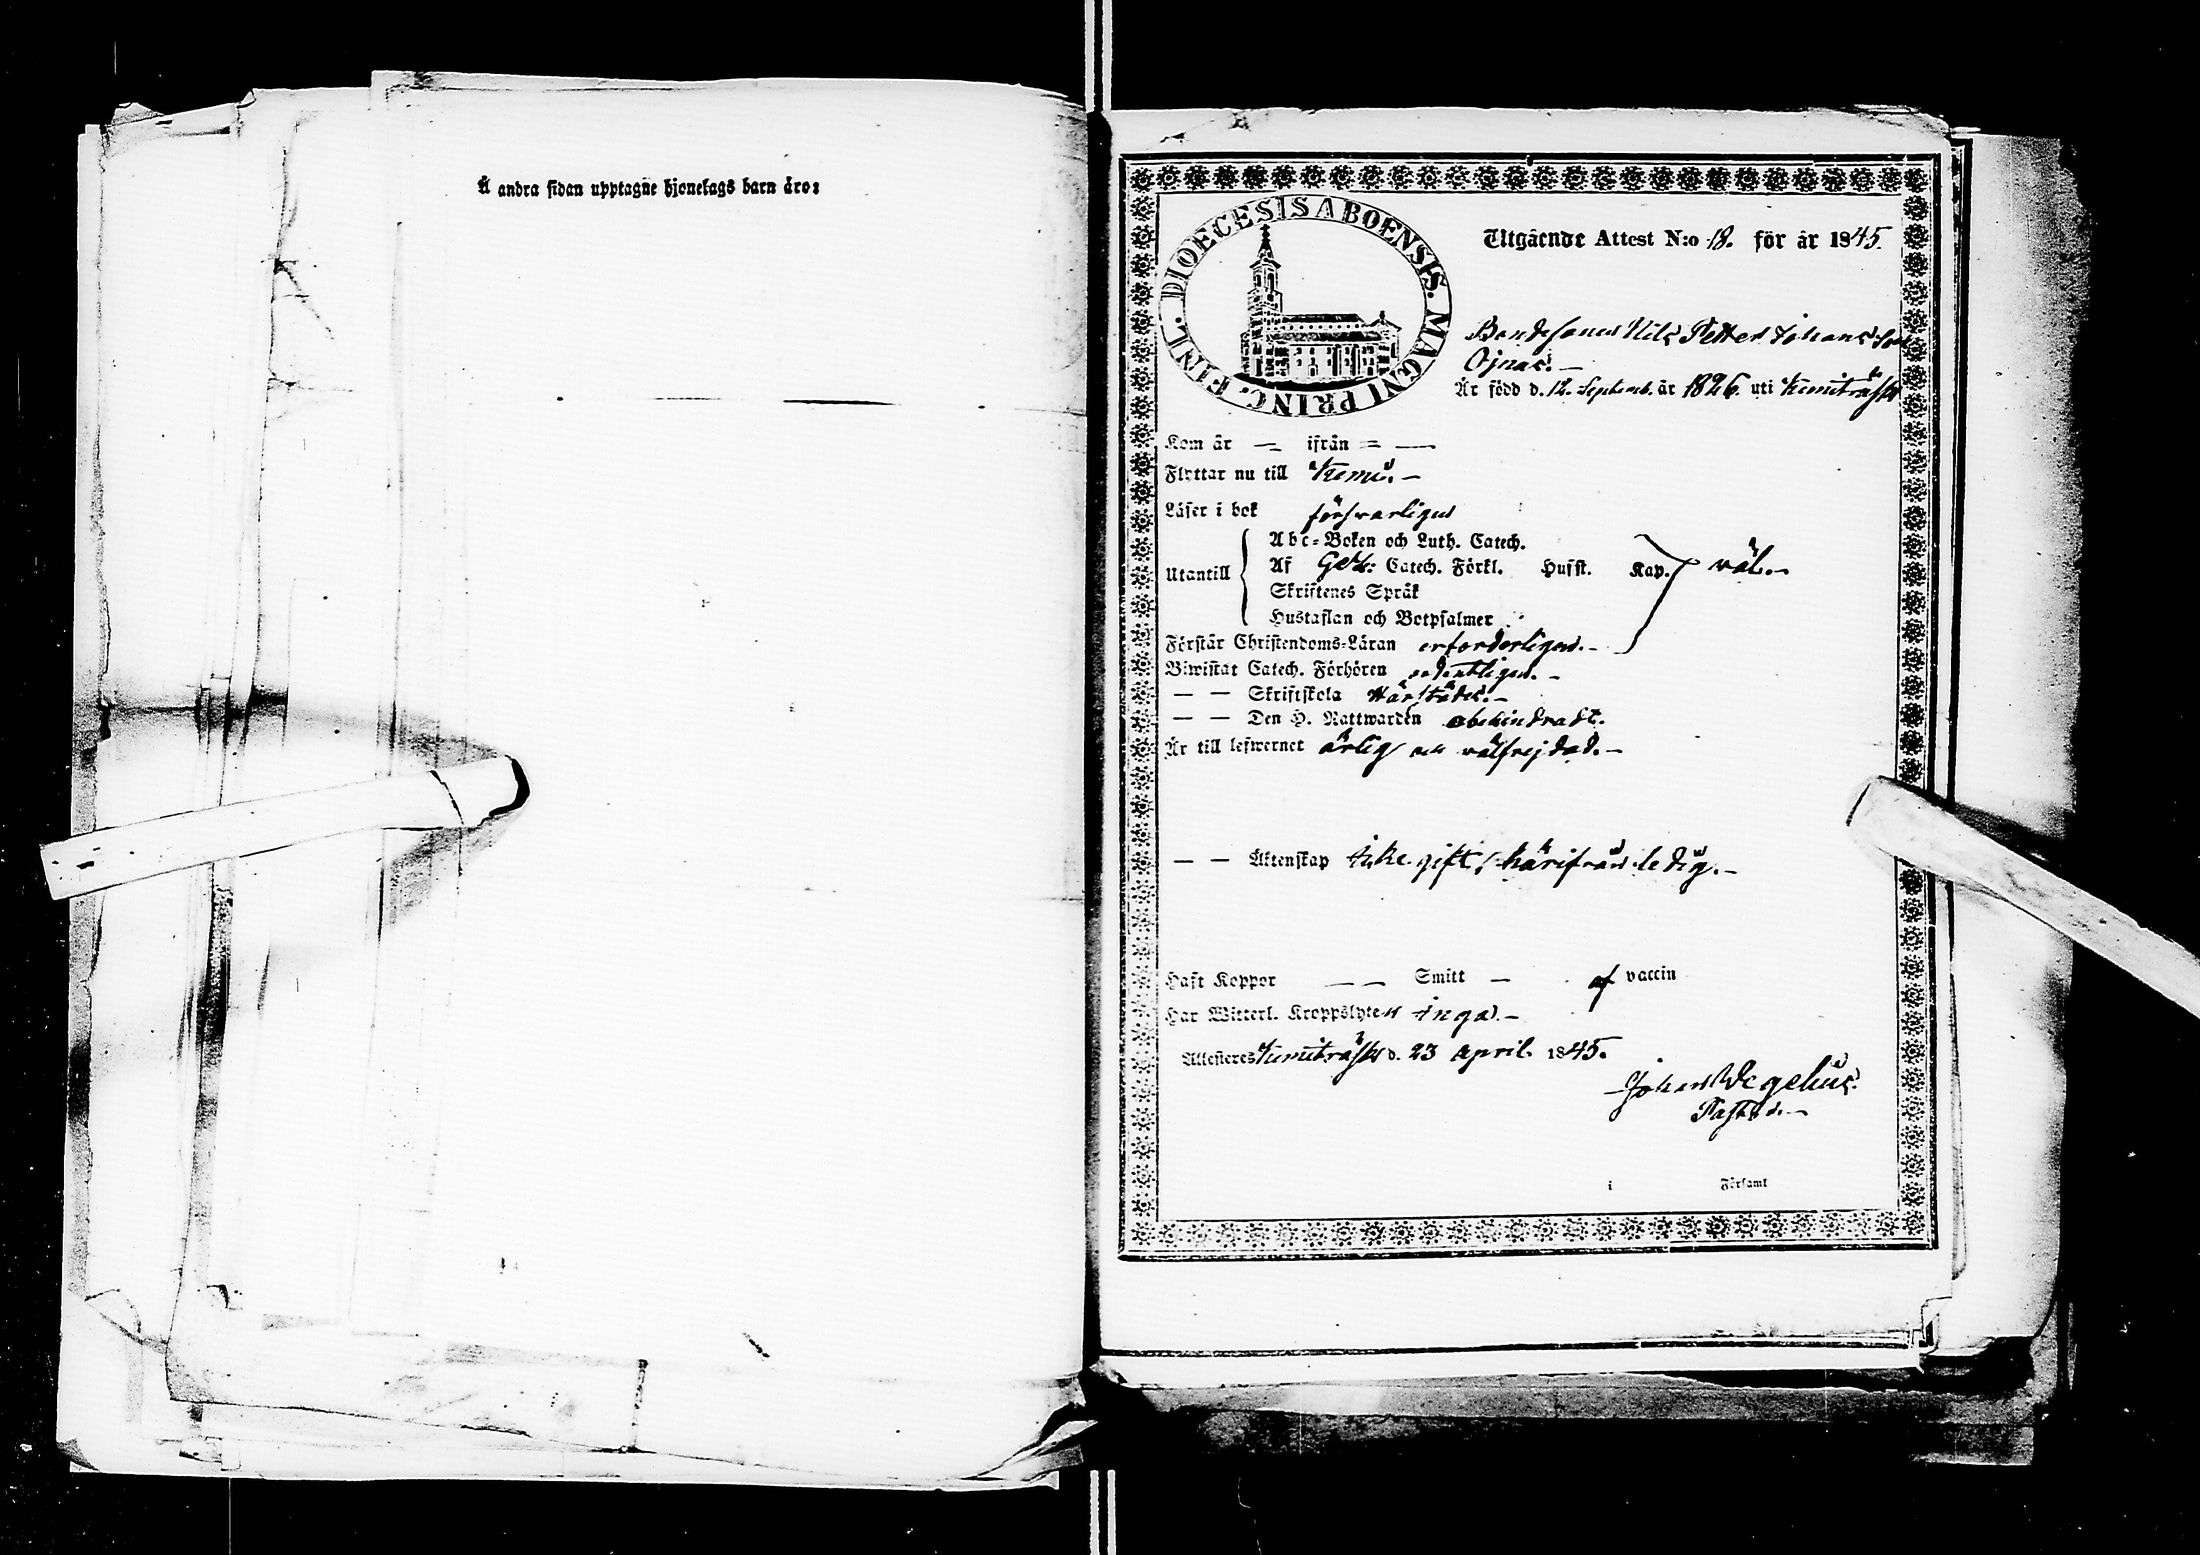 Å andra sidan upptagne hjonelags barn äro:
DIOECESIS ABOENSIS. MAGNI PRINC. FINL.
Utgående Attest N:o 18. för år 1845.
Bondesonen Nils Petter Johansson
Ojnas.
Är född d. 12. Septemb. år 1826. uti Kemiträsk
Kom år — ifrån —
Flyttar nu till Kemi.
Läser i bok försvarligen
Utantill
Abc-Boken och Luth. Catech.
Af Catech. Förkl. Husst. Kap. väl.
Skriftenes Språk
Hustaflan och Botpsalmer
Förstår Christendoms-Läran erforderligen.
Biwistat Catech. Förhören ordentligen.
— — Skriftskola härstädes.
— — Den H. Nattwarden obehindradt.
Är till lefwernet ärlig och välfrejdad.
— — Äktenskap icke gift, härifrån ledig.
Haft Koppor — — Smitt — af vaccin
Har Witterl. Kroppslyten inga.
Attesteres Kemiträsk d. 23 April. 1845.
Johan Wegelius.
Pastor.
i Församl